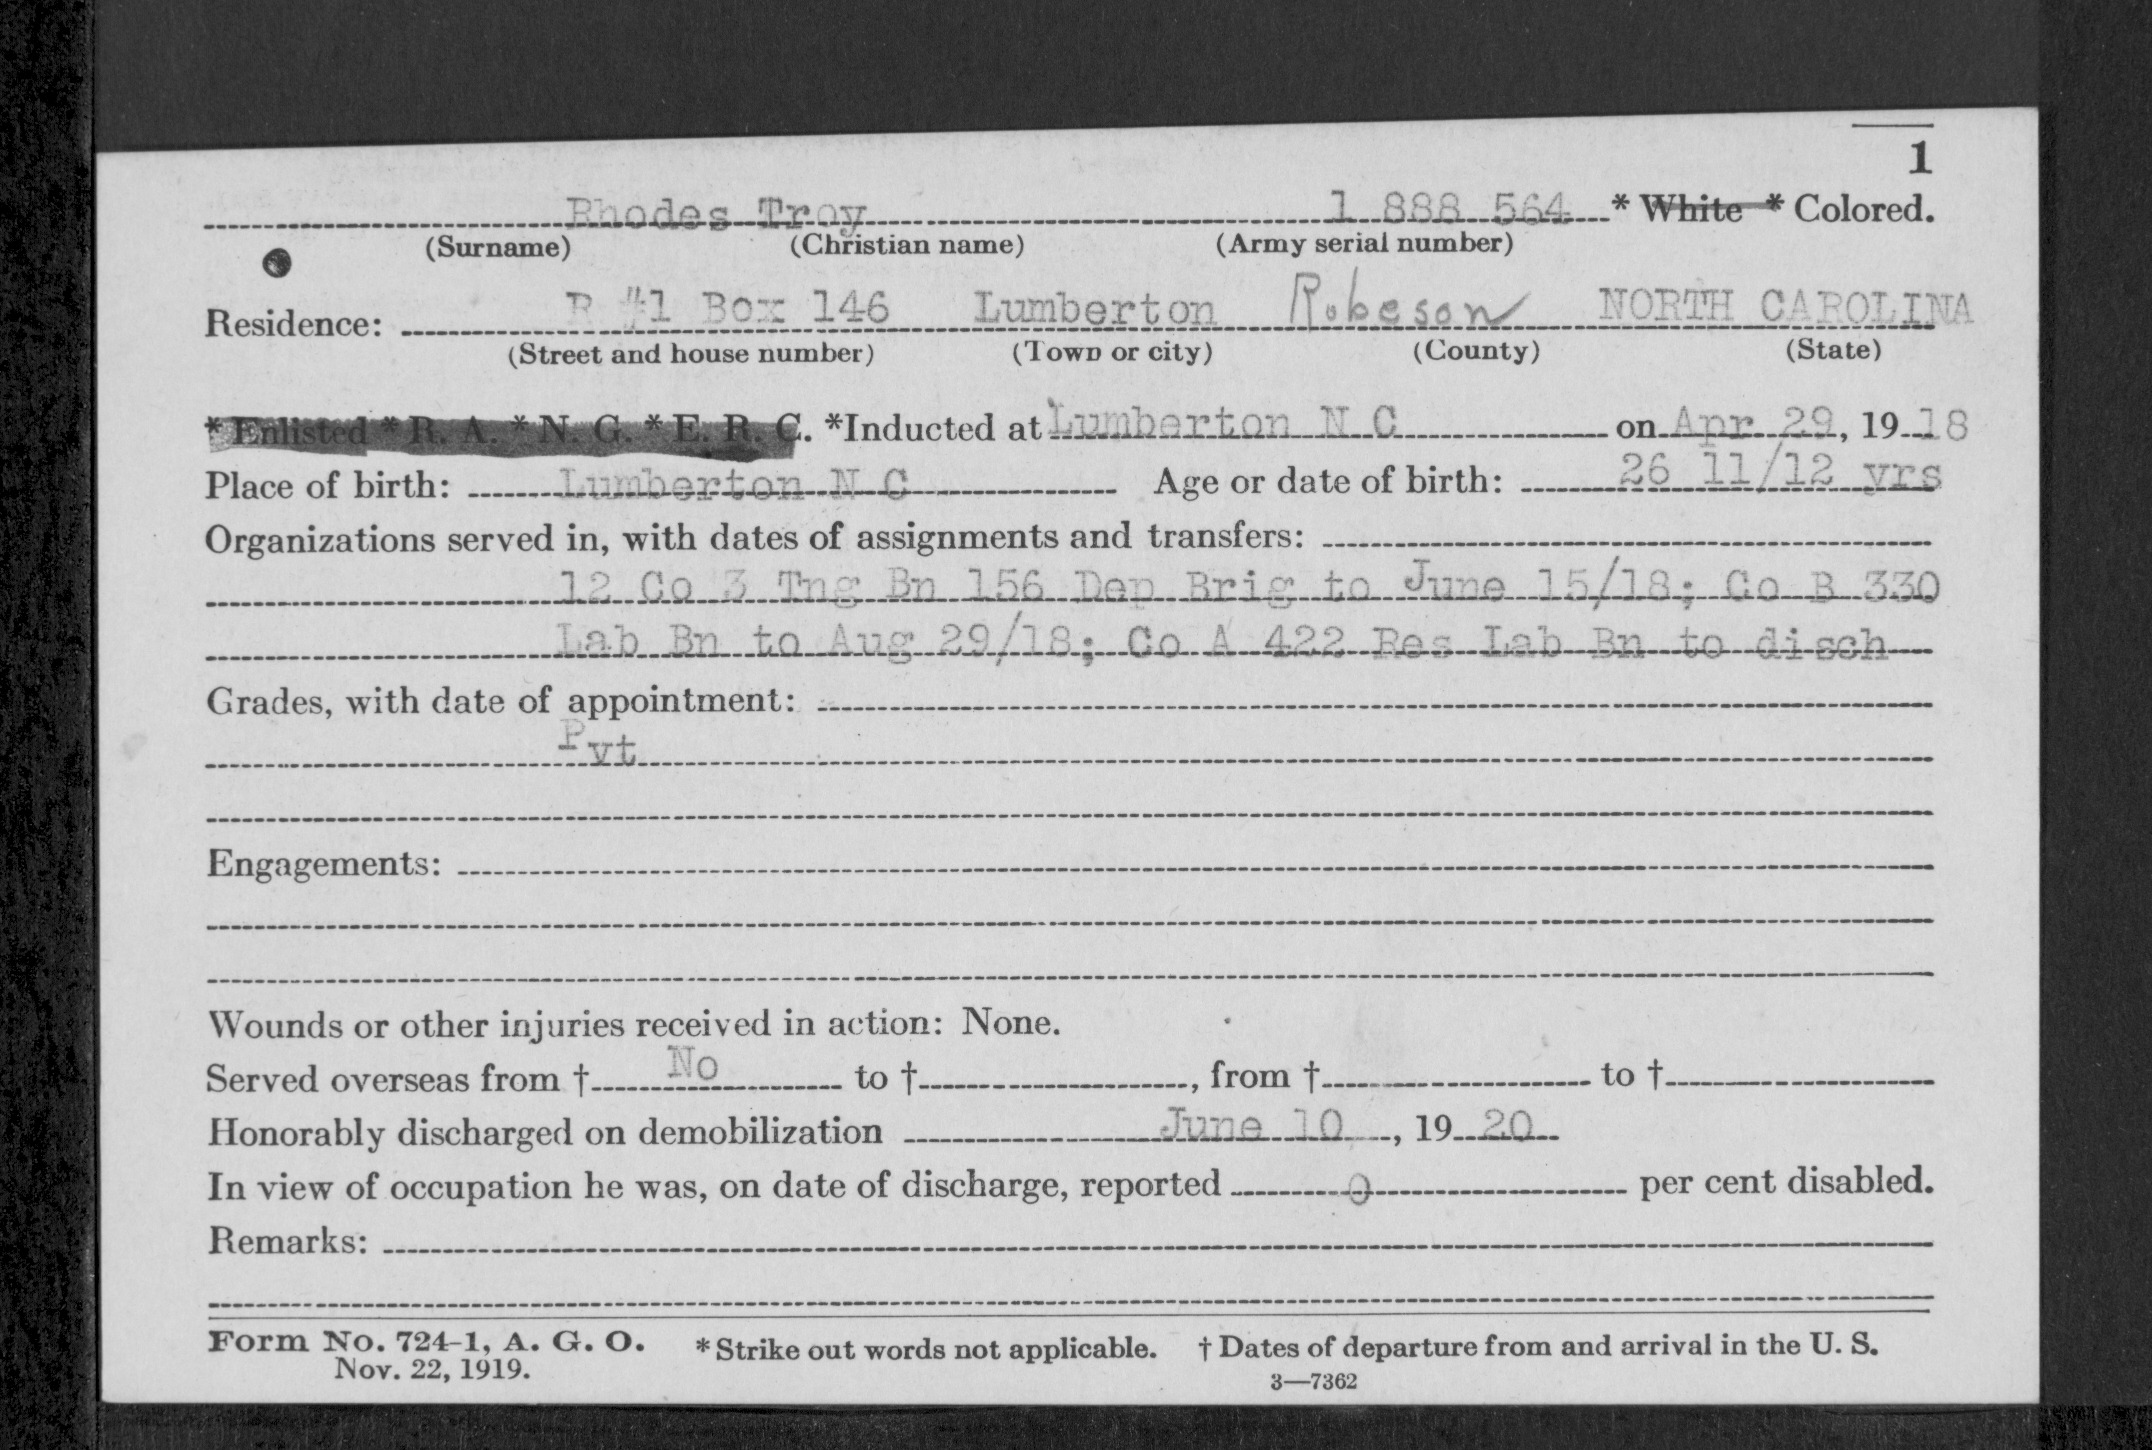 1
Rhodes Troy 1 888 564 * White * Colored.
(Surname) (Christian name) (Army serial number)
Residence: R #1 Box 146 Lumberton Robeson NORTH CAROLINA
(Street and house number) (Town or city) (County) (State)
* Enlisted * R. A. * N. G. * E. R. C. *Inducted at Lumberton N C on Apr 29, 19 18
Place of birth: Lumberton N C Age or date of birth: 26 11/12 yrs
Organizations served in, with dates of assignments and transfers:
12 Co 3 Tng Bn 156 Dep Brig to June 15/18; Co B 330
Lab Bn to Aug 29/18; Co A 422 Res Lab Bn to disch
Grades, with date of appointment:
Pvt
Engagements:
Wounds or other injuries received in action: None.
Served overseas from † No to †, from † to †
Honorably discharged on demobilization June 10, 19 20
In view of occupation he was, on date of discharge, reported 0 per cent disabled.
Remarks:
Form No. 724-1, A. G. O. * Strike out words not applicable. † Dates of departure from and arrival in the U. S.
Nov. 22, 1919.
3—7362